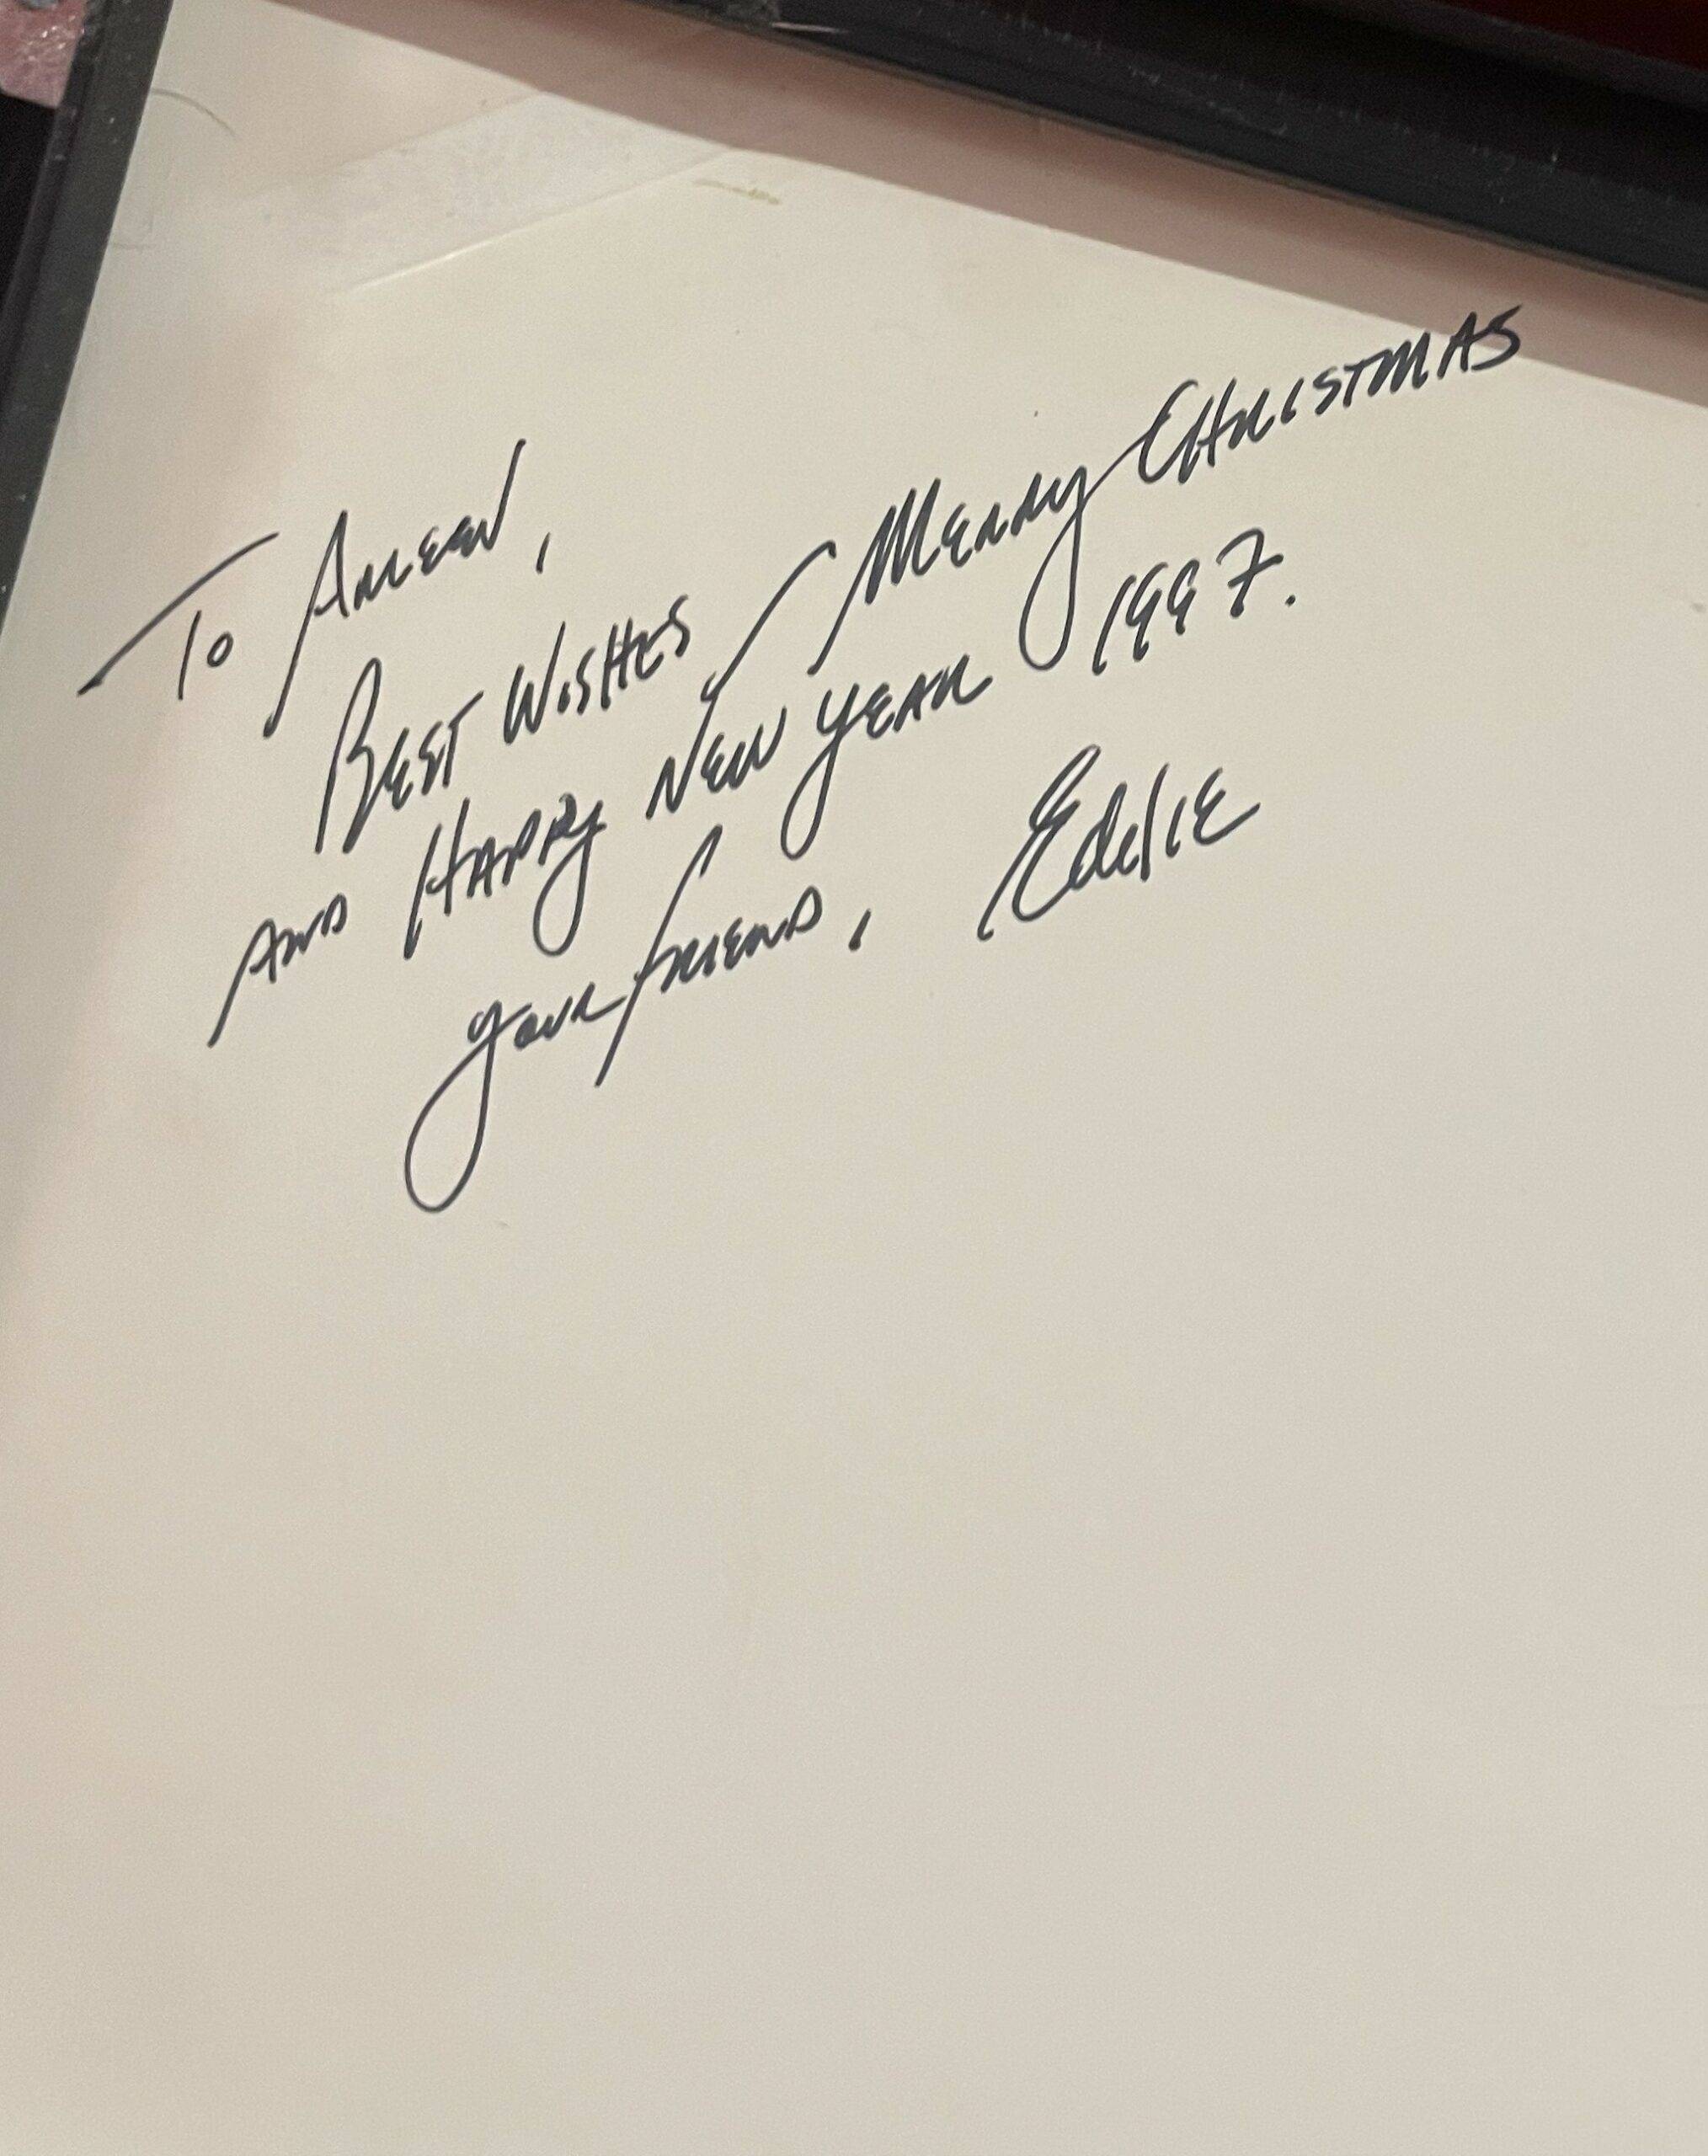 To Ameen,
Best Wishes, Merry Christmas
And Happy New Year 1997.
your friend, Eddie